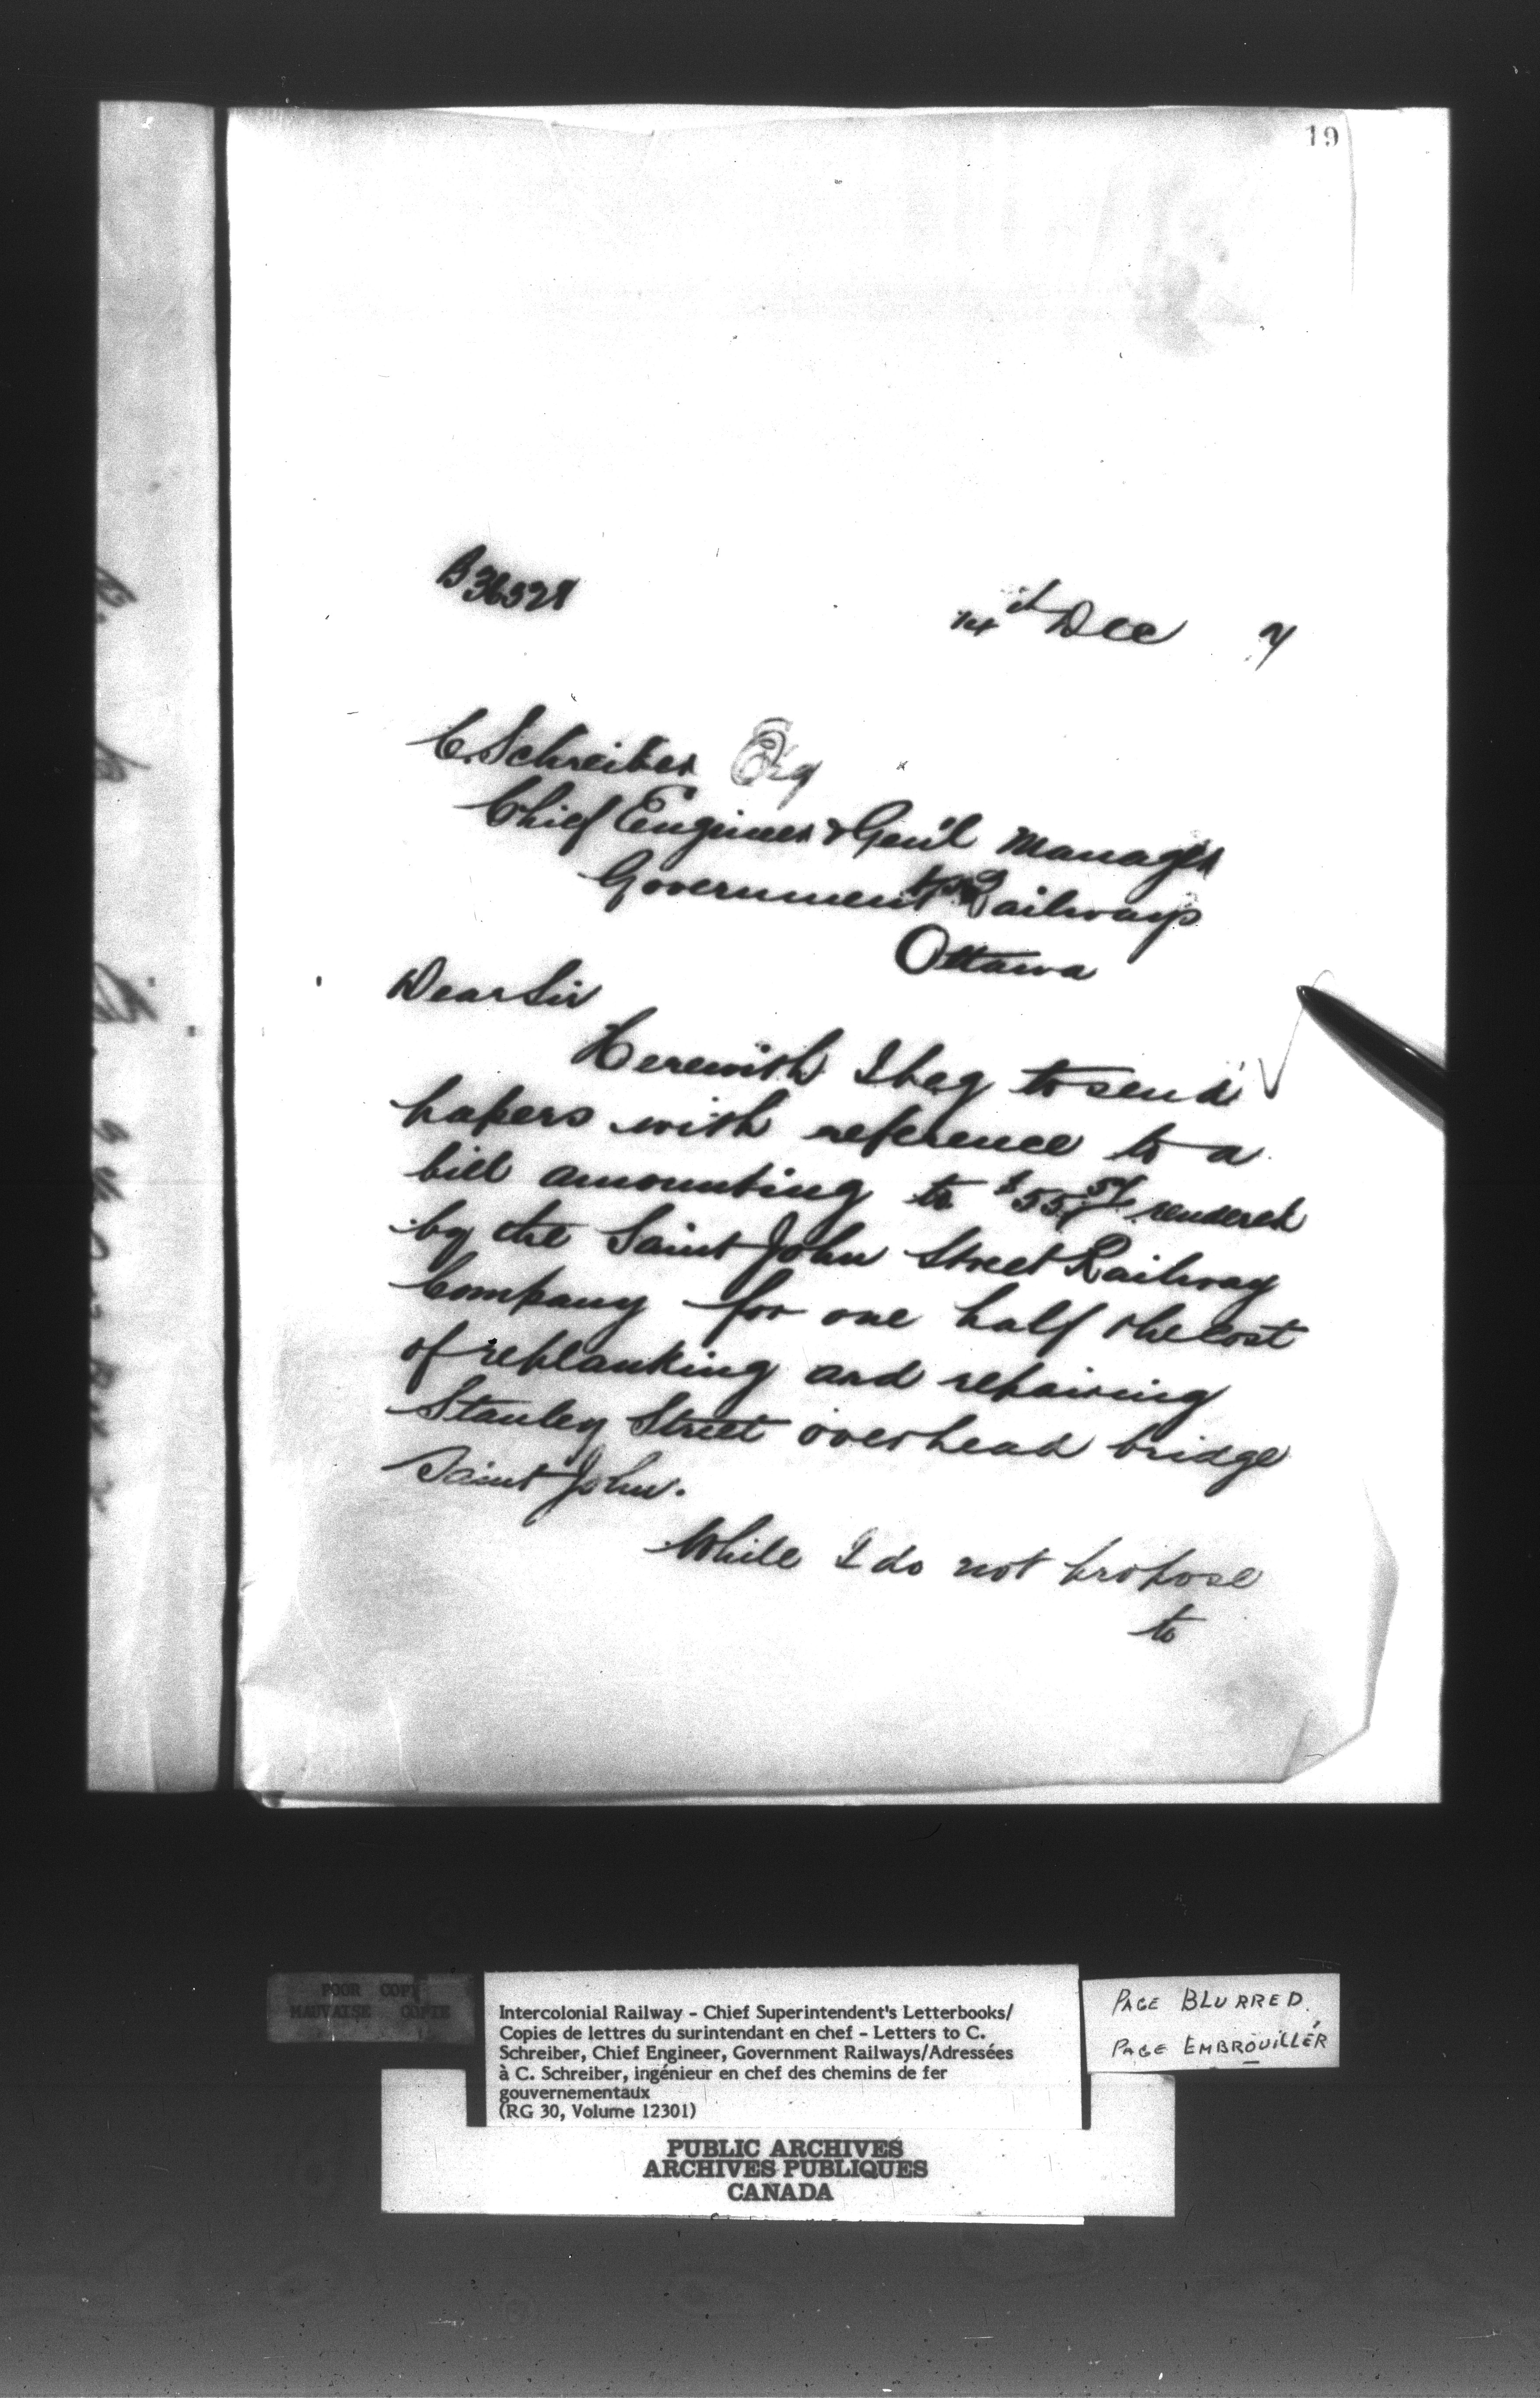 19
B36528
14th Dec 7
C. Schreiber Esq
Chief Engineer & Gen'l Manager
Government Railways
Ottawa
Dear Sir
Herewith I beg to send
papers with reference to a
bill amounting to $55 rendered
by the Saint John Street Railway
Company for one half the cost
of replanking and repairing
Stanley Street overhead bridge
Saint John.
While I do not propose
to
POOR COPY
MAUVAISE COPIE
Intercolonial Railway - Chief Superintendent's Letterbooks/
Copies de lettres du surintendant en chef - Letters to C.
Schreiber, Chief Engineer, Government Railways/Adressées
à C. Schreiber, ingénieur en chef des chemins de fer
gouvernementaux
(RG 30, Volume 12301)
PAGE BLURRED
PAGE EMBROUILLÉR
PUBLIC ARCHIVES
ARCHIVES PUBLIQUES
CANADA